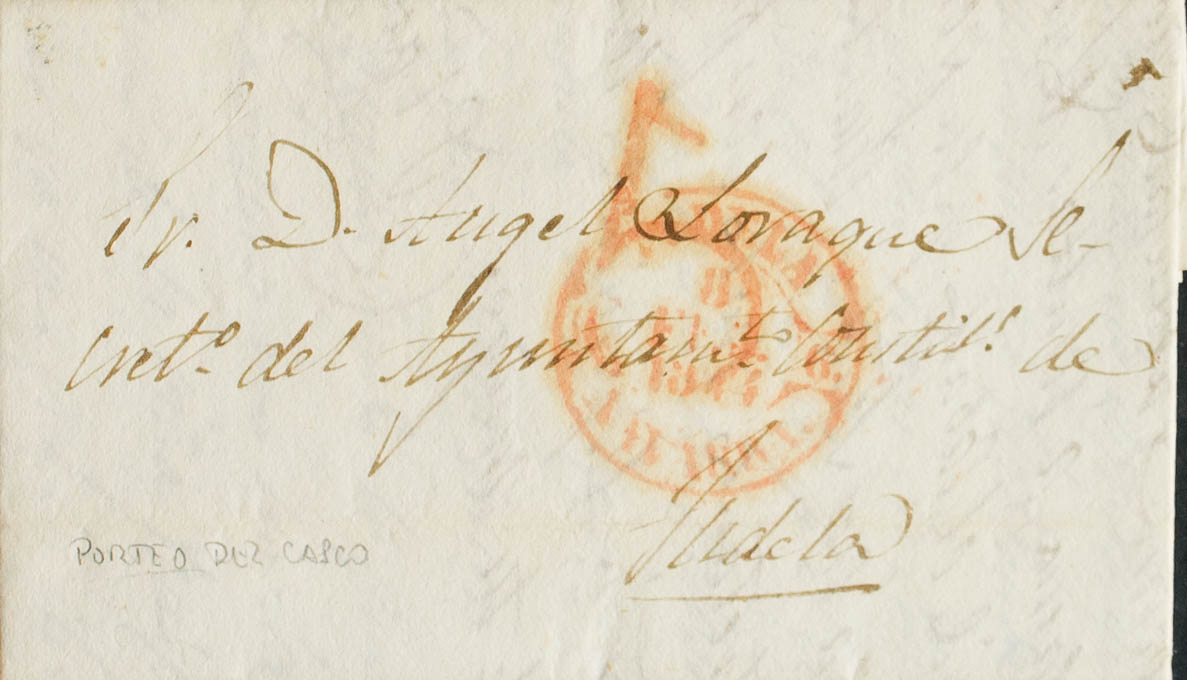 Sr. D. Angel Loraque Se-
cret.º del Ayuntam.to Constit.l de
Tudela
PORTEO DEL CASCO